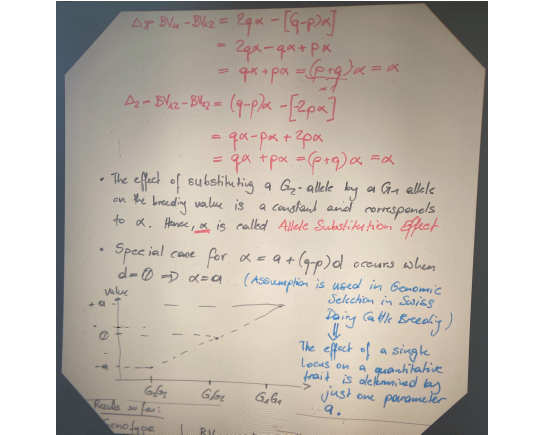 Δ₁ = BV₁₁ - BV₁₂ = 2qα - [(q-p)α]
= 2qα - qα + pα
= qα + pα = (p+q)α = α
=1
Δ₂ = BV₁₂ - BV₂₂ = (q-p)α - [-2pα]
= qα - pα + 2pα
= qα + pα = (p+q)α = α
• The effect of substituting a G₂-allele by a G₁ allele
on the breeding value is a constant and corresponds
to α. Hence, α is called Allele Substitution Effect
• Special case for α = a + (q-p)d occurs when
d = 0 ⇒ α = a (Assumption is used in Genomic
Selection in Swiss
Dairy Cattle Breeding)
⇓
The effect of a single
locus on a quantitative
trait is determined by
just one parameter
a.
value
+a
0
-a
G₂G₂ G₁G₂ G₁G₁
Results so far:
Genotype | BV